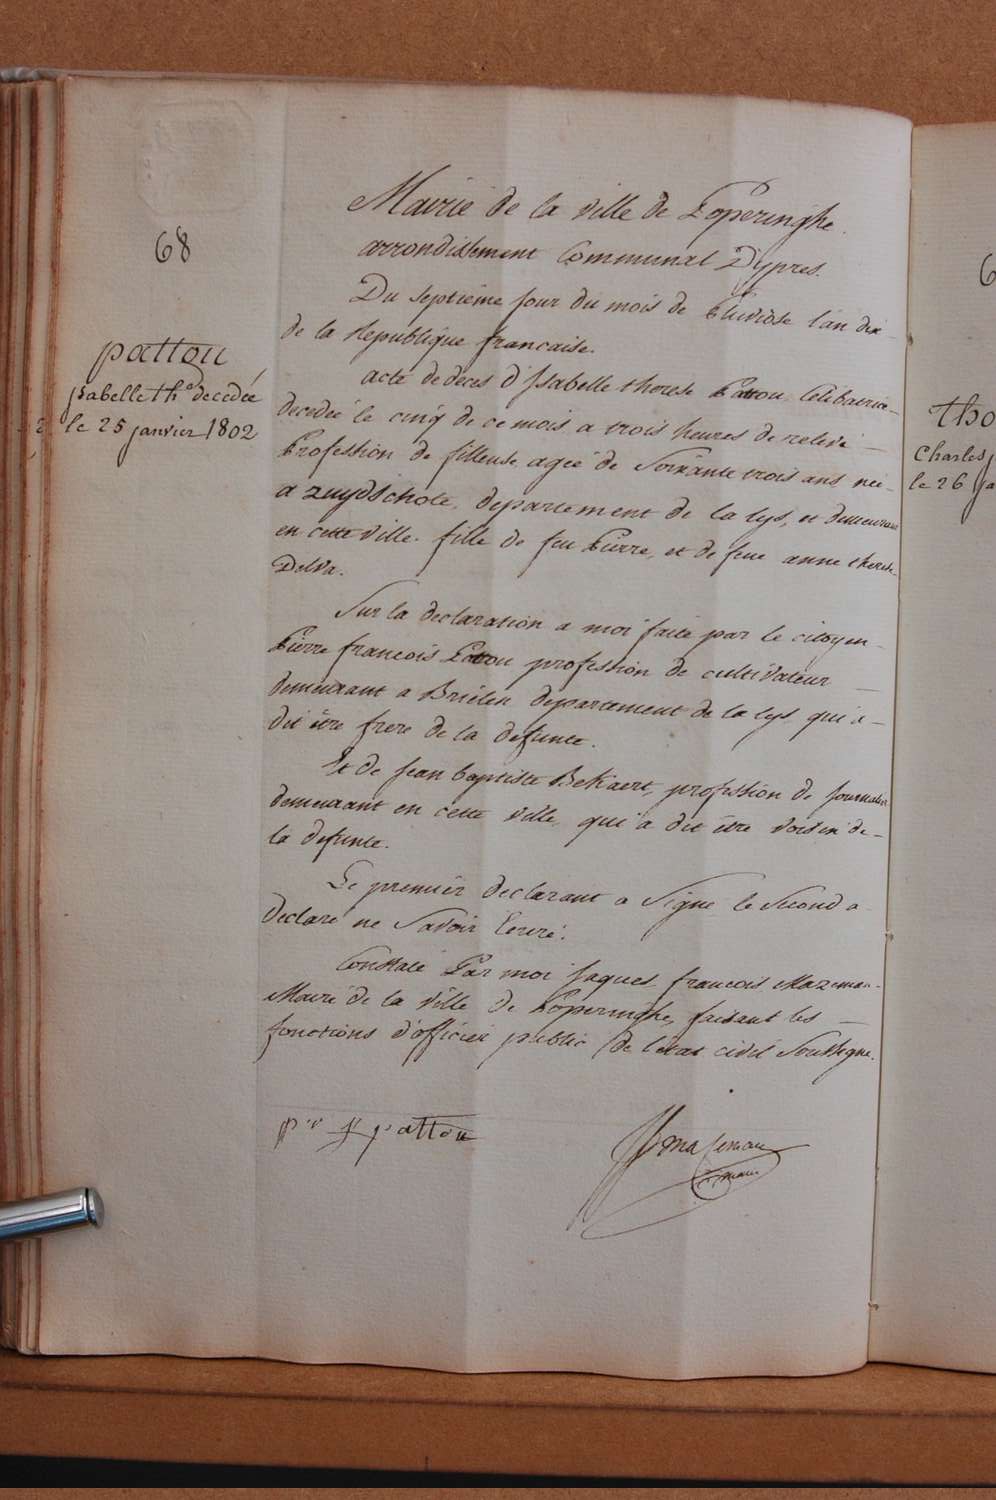 68
pattou
isabelle th.e decedée
le 25 janvier 1802
Mairie de la ville de Poperinghe.
arrondissement Communal D'ypres.
Du septieme jour du mois de Pluviose l'an dix
de la Republique francaise.
acte de deces d'Isabelle therese Pattou Celibatrice
decedeé le cinq de ce mois a trois heures de relevé
Profession de fileuse agée de Soixante trois ans née
a Zuydschote, departement de la Lys, et demeurant
en cette ville. fille de feu Pierre, et de feue anne therese
Delva.
Sur la declaration a moi faite par le citoyen
Pierre francois Pattou profession de cultivateur
demeurant a Brielen departement de la Lys qui a
dit être frere de la defunte.
Et de Jean baptiste Bekaert, profession de Journalier
demeurant en cette ville, qui a dit être voisin de
la defunte.
Le premier declarant a Signe le Second a
declaré ne Savoir Ecrire.
Constaté Par moi Jaques francois Mazeman
Maire de la ville de Poperinghe, faisant les
fonctions d'officier public de l'etat civil Soussigné.
p.r f pattou
JJ Mazeman
maire
tho
Charles
le 26 ja